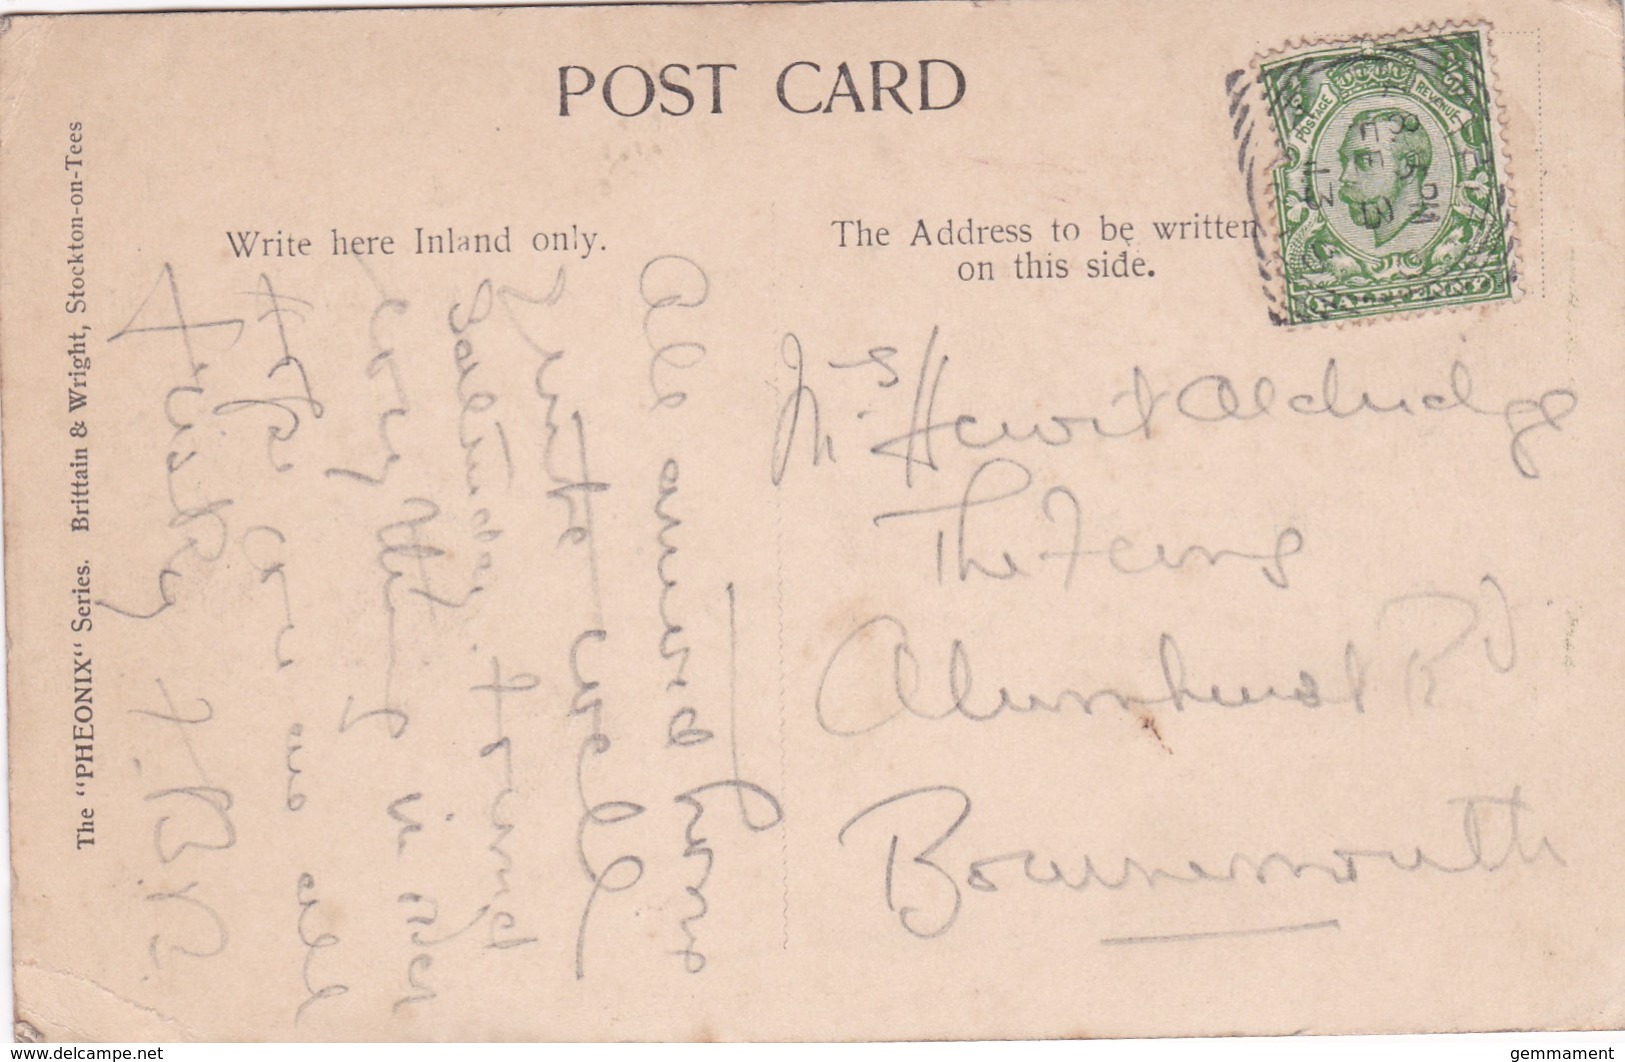 POST CARD
Write here Inland only.
The Address to be written
on this side.
The "PHEONIX" Series. Brittain & Wright, Stockton-on-Tees
All arrived home
quite well
Saturday. found
everything in order
Hope you are all
F. B. B.
POSTAGE
REVENUE
8 15 PM
FE 3
13
Mrs Hewit Aldridge
The Ferns
Alumhurst Rd
Bournemouth
www.delcampe.net
gemmament